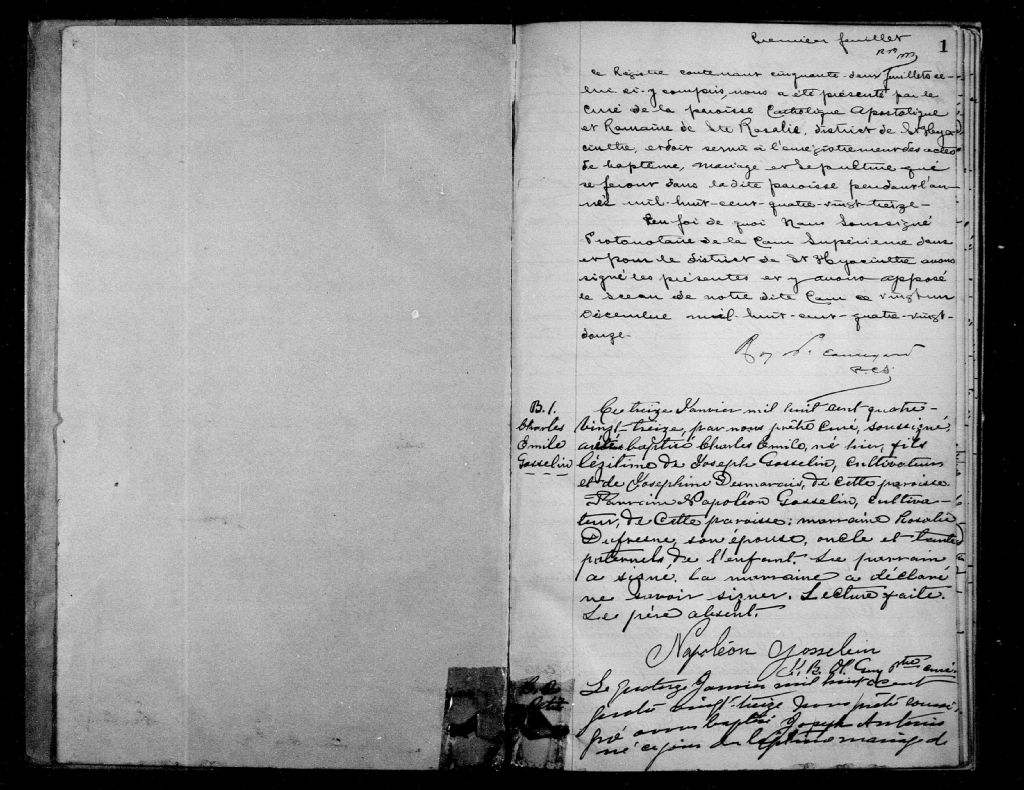 Premier feuillet
1
ce Régistre contenant cinquante-deux feuillets ce-
lui ci-y compris, nous a été présenté par le
curé de la paroisse Catholique Apostolique
et Romaine de Ste Rosalie, district de St Hya
cinthe, et doit servir à l'enregistrement des actes
de baptême, mariage et sépulture qui
se feront dans la dite paroisse pendant l'an-
née mil-huit-cent-quatre-vingt-treize-
En foi de quoi Nous Soussigné
Protonotaire de la Cour Supérieure dans
et pour le district de St Hyacinthe avons
signé les présentes et y avons apposé
le sceau de notre dite Cour ce vingt un
Décembre mil-huit-cent-quatre-vingt-
douze-
P.C.S.
B. 1.
Charles
Emile
Gosselin
Ce treize Janvier mil huit cent quatre-
vingt-treize, par nous prêtre curé, soussigné,
a été baptisé Charles Emile, né hier, fils
légitime de Joseph Gosselin, cultivateur
et de Josephine Desmarais, de cette paroisse
Parrain Napoléon Gosselin, cultiva-
teur, de cette paroisse; marraine Rosalie
Dufresne, son épouse, oncle et tante
paternels de l'enfant. Le parrain
a signé. La marraine a déclaré
ne savoir signer. Lecture faite.
Le père absent.
Napoléon Gosselin
ptre curé
Le quatorze Janvier mil huit cent
quatre vingt-treize nous prêtre soussi-
gné avons baptisé Joseph Antonio
né ce jour du légitime mariage de